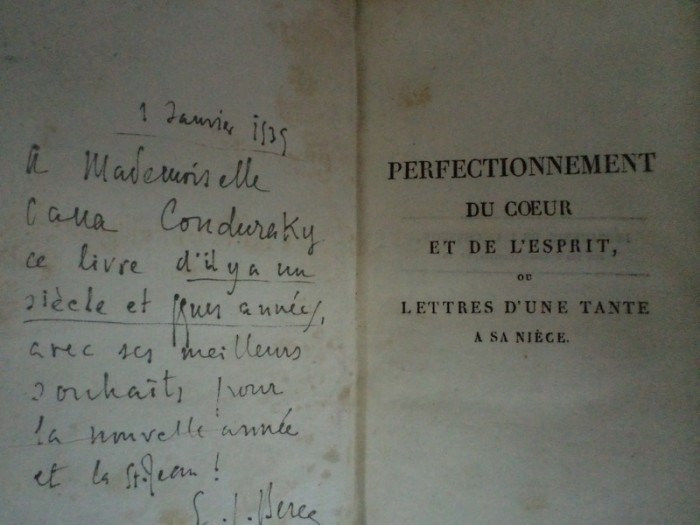 1 Janvier 1939
A Mademoiselle
Conduraky
ce livre d'il y a un
siècle et ques années,
avec ses meilleurs
souhaits pour
la nouvelle année
et la St. Jean !
PERFECTIONNEMENT
DU CŒUR
ET DE L'ESPRIT,
OU
LETTRES D'UNE TANTE
A SA NIÈCE.